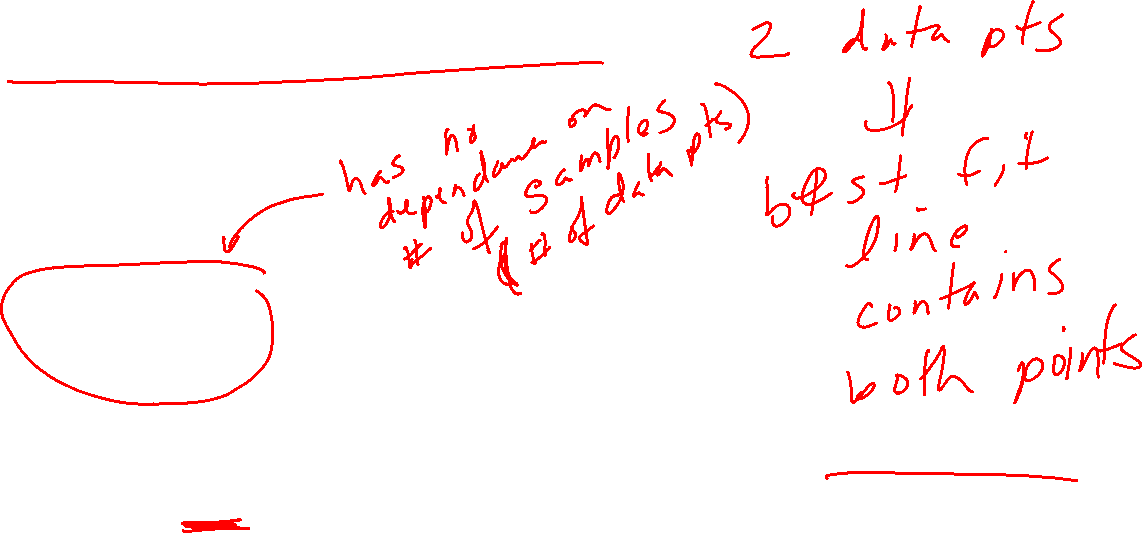 has no
dependance on
# of samples
(# of data pts)
2 data pts
⇓
best fit
line
contains
both points